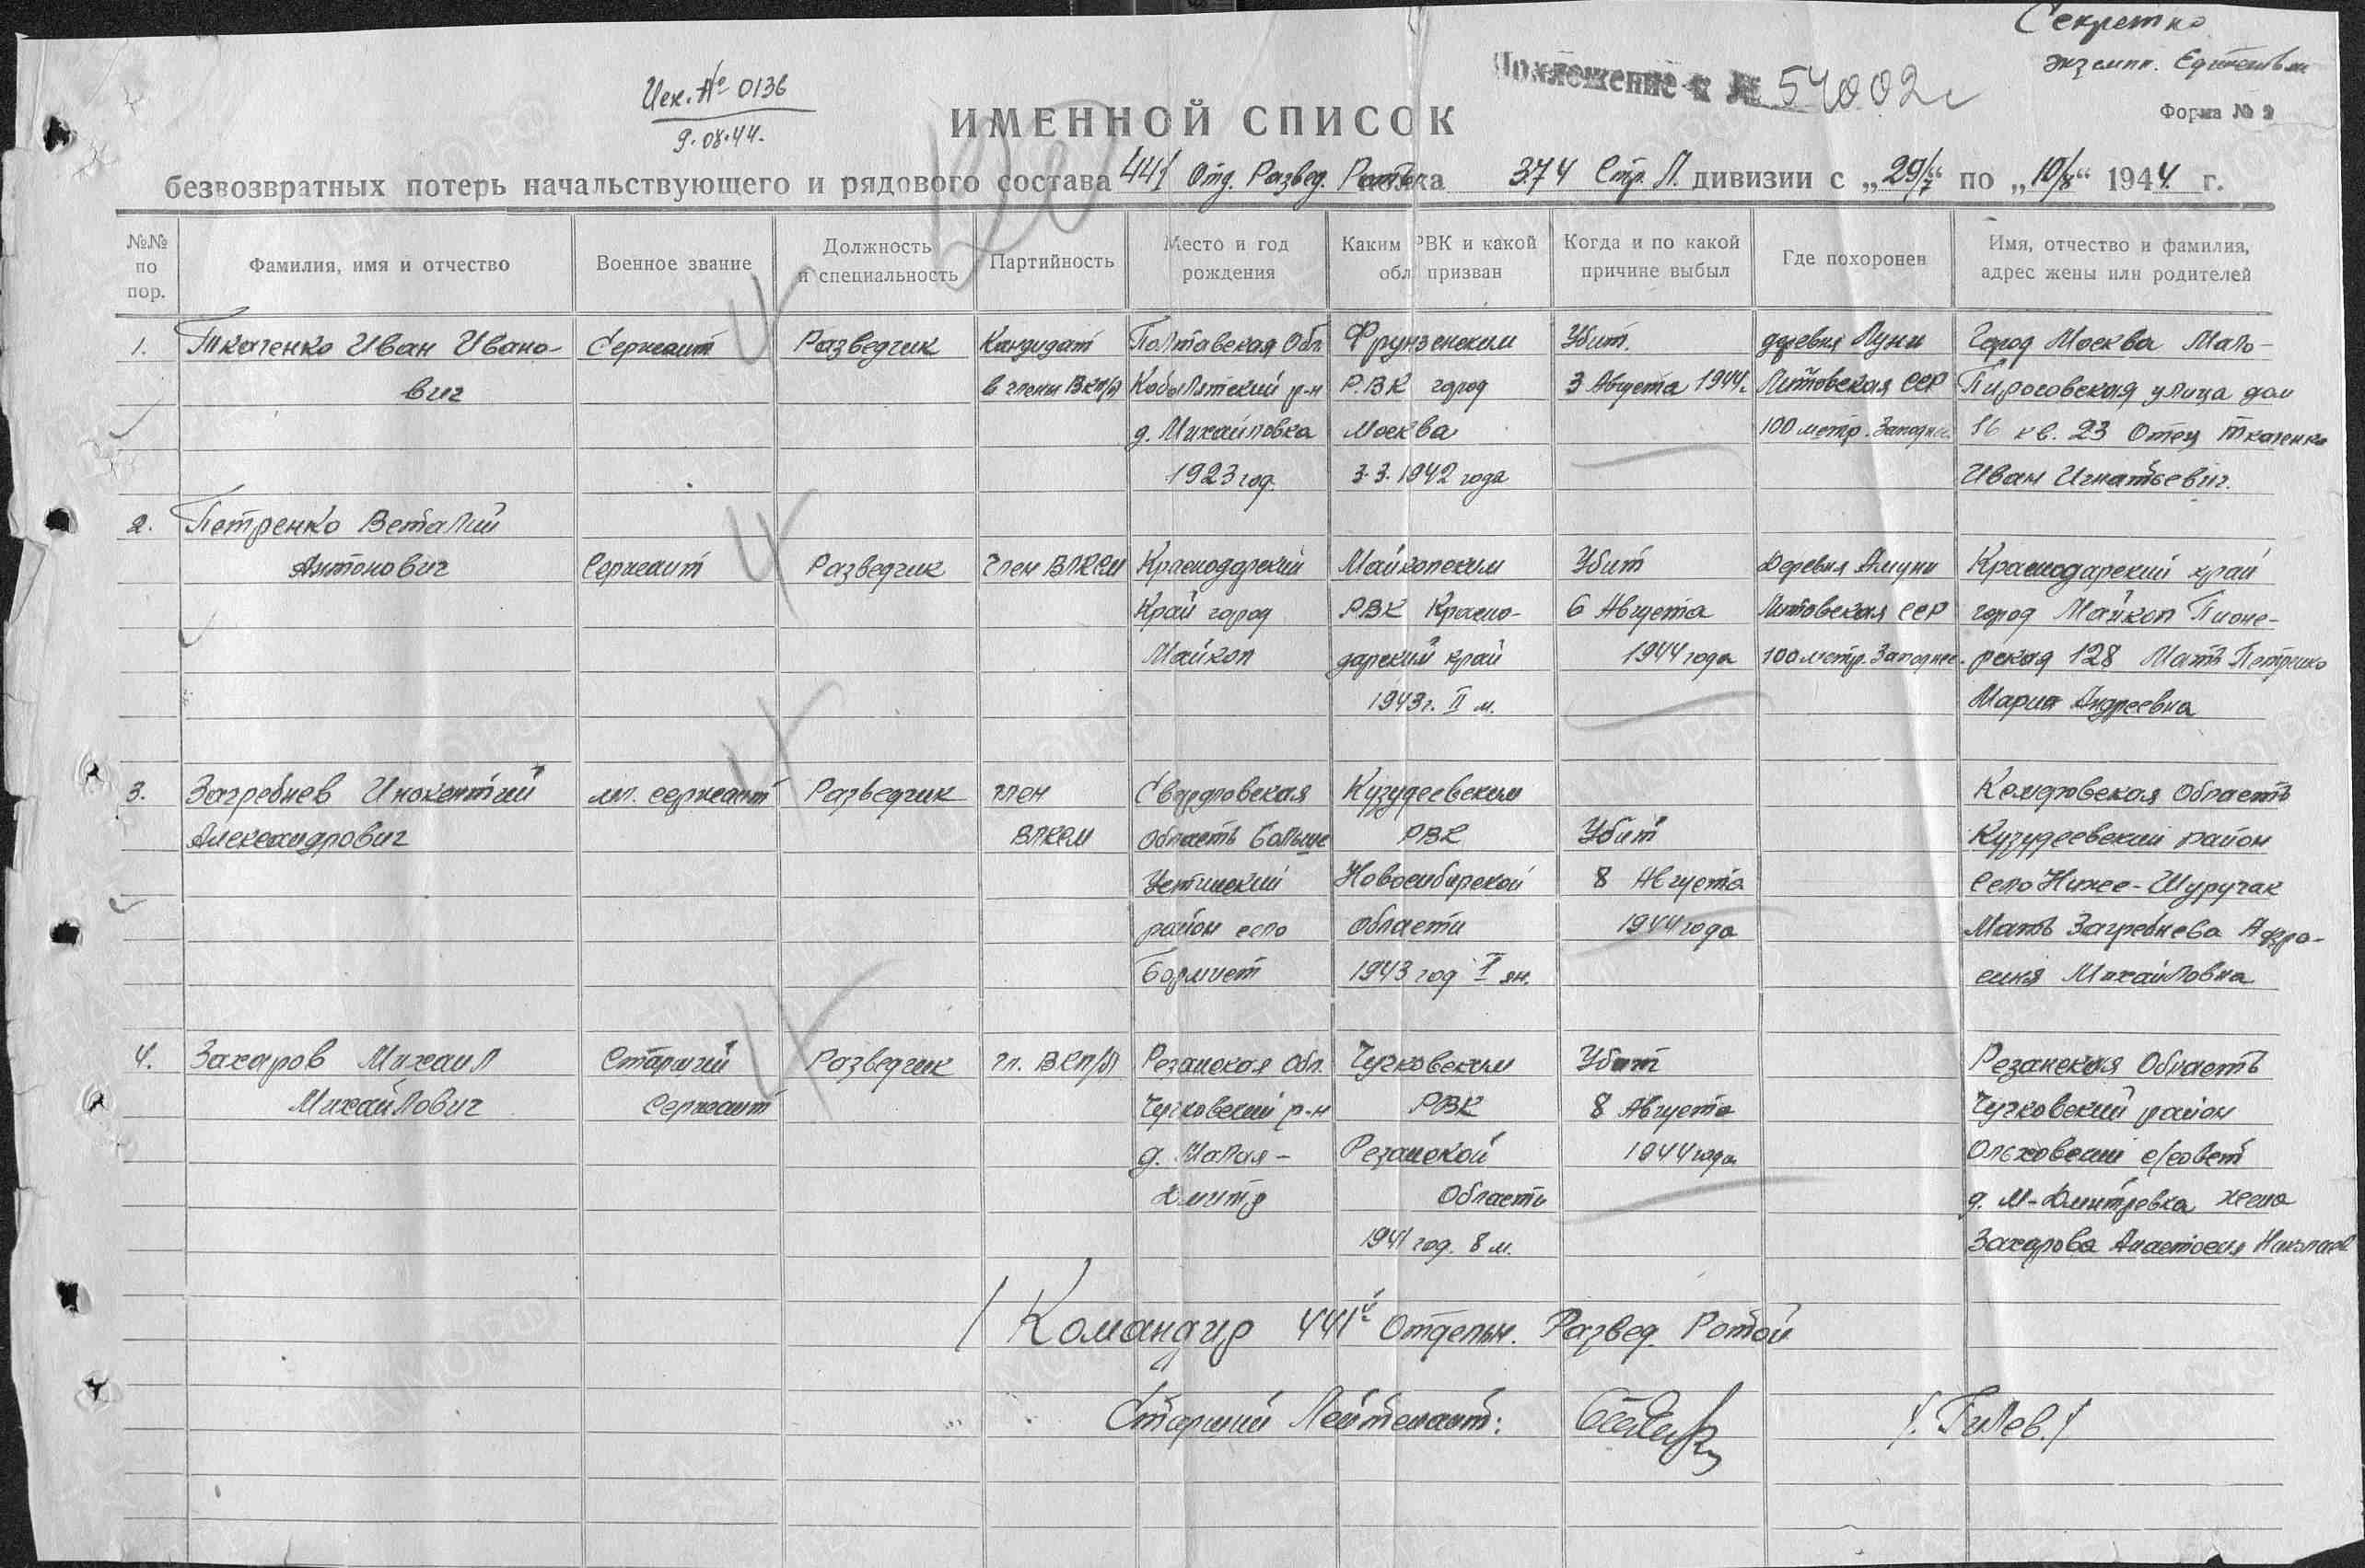 Секретно
экземпл. Единствен
Исх. № 0136
9.08.44.
Приложение к № 54002с
Форма № 2
ИМЕННОЙ СПИСОК
безвозвратных потерь начальствующего и рядового состава 441 Отд. Развед. Роты полка 374 Стр. Л. дивизии с „29/7“ по „10/8“ 1944 г.
№№ по пор.
Фамилия, имя и отчество
Военное звание
Должность и специальность
Партийность
Место и год рождения
Каким РВК и какой обл. призван
Когда и по какой причине выбыл
Где похоронен
Имя, отчество и фамилия, адрес жены или родителей
1. Ткаченко Иван Ивано- Сержант Разведчик Кандидат Полтавская Обл. Фрунзенским Убит. деревня Луни Город Москва Мало-
вич в члены ВКП/б/ Кобыляский р-н Р.ВК город 3 Августа 1944г. Литовская ССР Пироговская улица дом
д. Михайловка Москва 100 метр. Западнее 16 кв. 23 Отец Ткаченко
1923 год. 3.3.1942 года Иван Игнатьевич.
2. Петренко Веталий
Антонович Сержант Разведчик Член ВЛКСМ Краснодарский Майкопским Убит Деревня Амуни Краснодарский край
Край город РВК Красно- 6 Августа Литовская ССР город Майкоп Пионе-
Майкоп дарский край 1944 года 100 метр. Западнее. рская 128 Мать Петренко
1943г. II м. Мария Андреевна
3. Загребнев Инокентий мл. сержант Разведчик член Свердловская Кузудеевским Кемеровская область
Александрович ВЛКСМ область Больше РВК Убит Кузудеевский район
Устинский Новосибирской 8 Августа Село Нижее-Шуручак
район село области 1944 года Мать Загребнева Афро-
Бармист 1943 год I ян. синья Михайловна
4. Захаров Михаил Старший Разведчик чл. ВКП/б/ Резанская Обл. Чучковским Убит Резанская Область
Михайлович Сержант Чучковский р-н РВК 8 Августа Чучковский район
д. Малая- Резанской 1944 года Ольховский с/совет
Дмитр Область д. М-Дмитревка жена
1941 год. 8 м. Захарова Анастосия Николаев
/ Командир 441й Отдельн. Развед. Ротой
Старший Лейтенант: /. Гилев. /